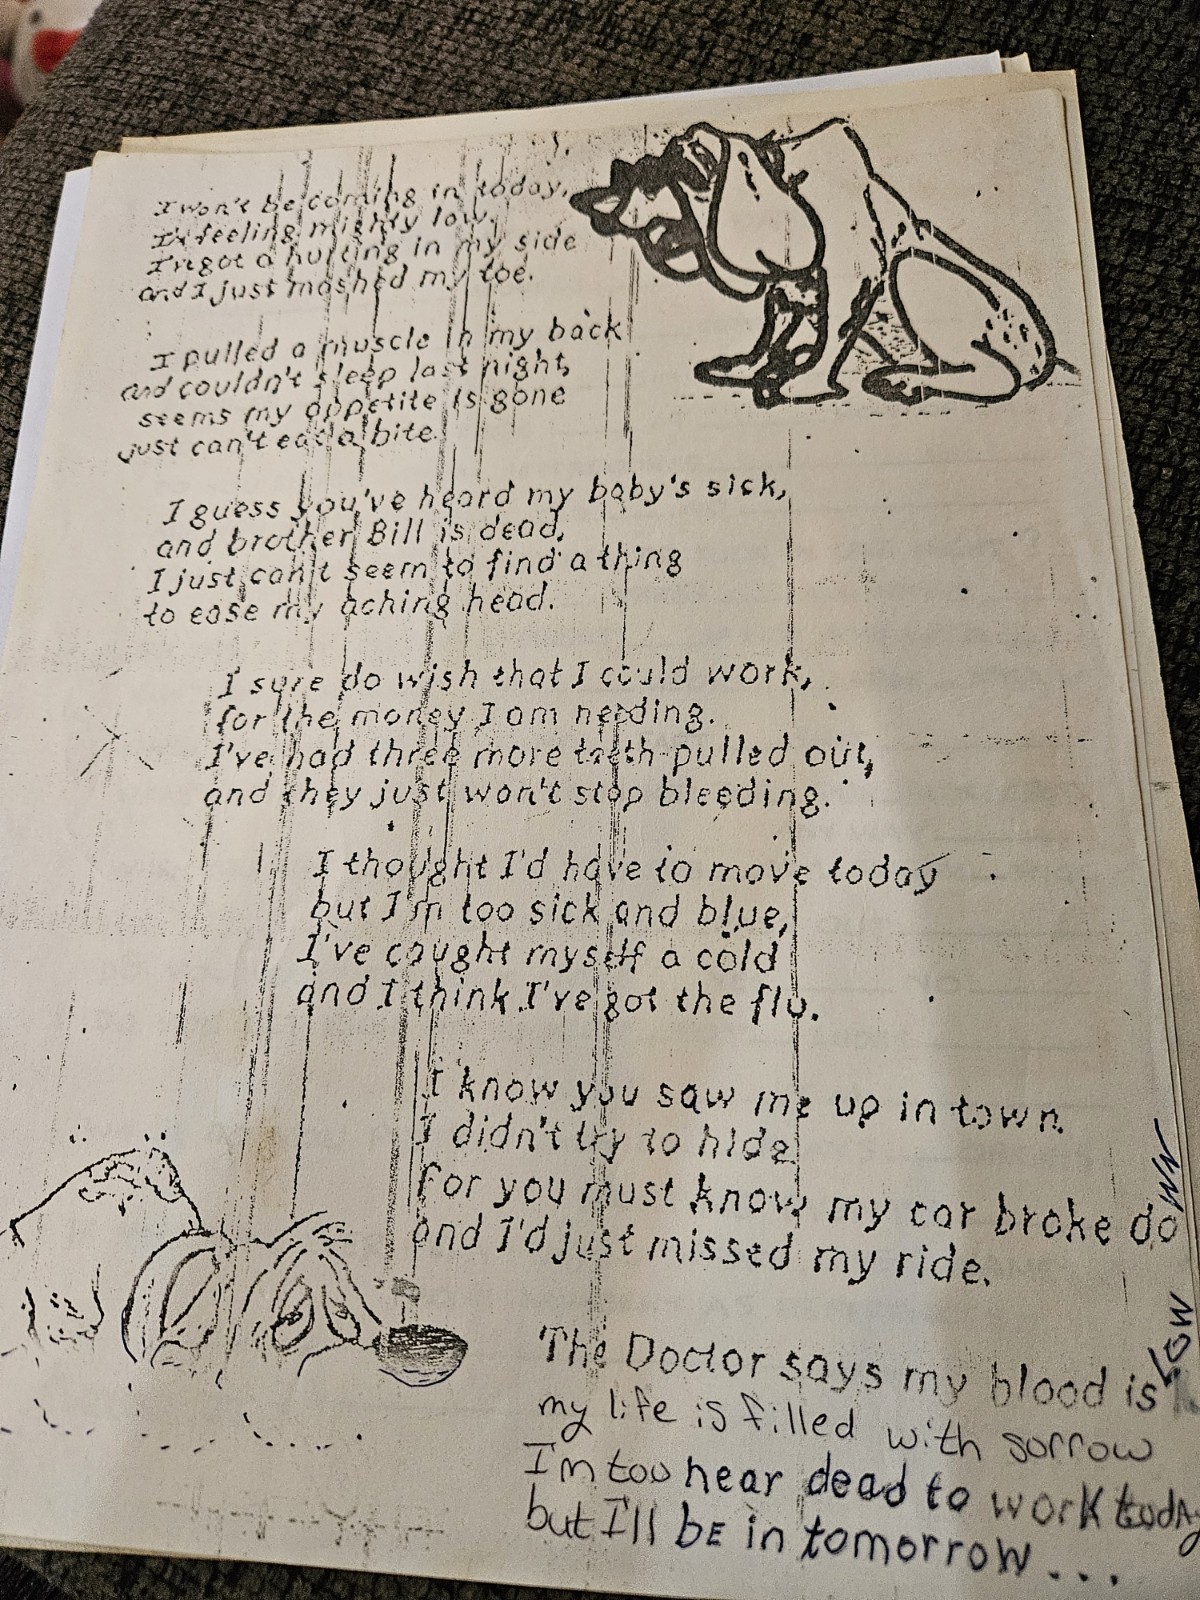 I won't be coming in today,
I'm feeling mighty low.
I've got a hurting in my side
and I just mashed my toe.
I pulled a muscle in my back
and couldn't sleep last night,
seems my appetite is gone
just can't eat a bite.
I guess you've heard my baby's sick,
and brother Bill is dead,
I just can't seem to find a thing
to ease my aching head.
I sure do wish that I could work,
for the money I am needing.
I've had three more teeth pulled out,
and they just won't stop bleeding.
I thought I'd have to move today
but I'm too sick and blue,
I've caught myself a cold
and I think I've got the flu.
I know you saw me up in town.
I didn't try to hide
for you must know my car broke down
and I'd just missed my ride.
The Doctor says my blood is low
my life is filled with sorrow
I'm too near dead to work today
but I'll BE in tomorrow...